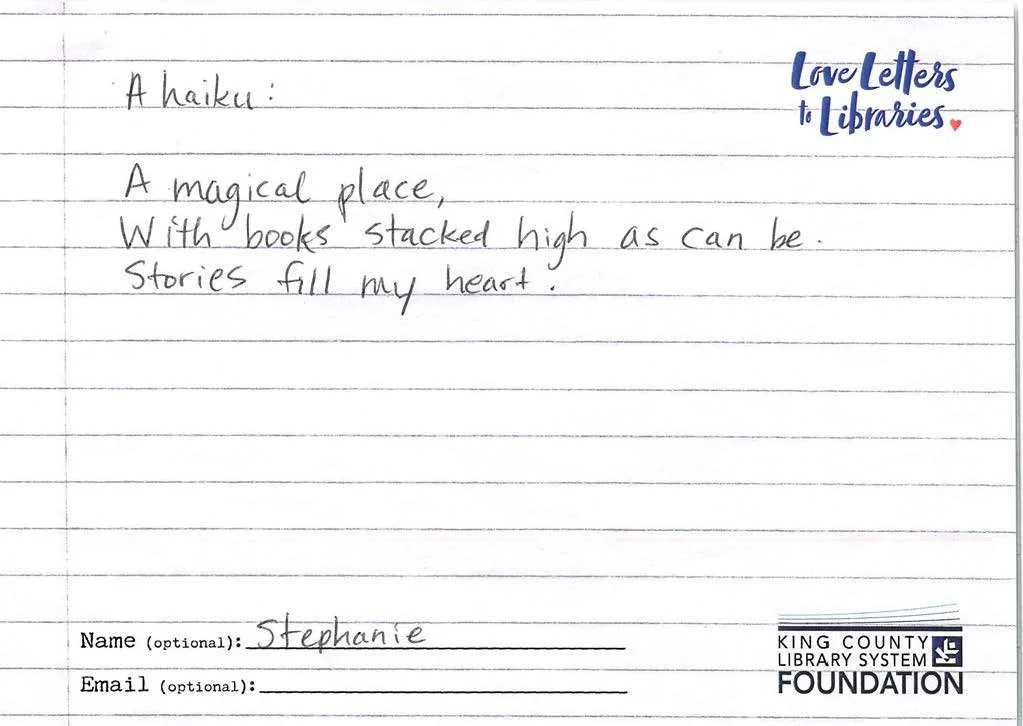 Love Letters
to Libraries
A haiku:
A magical place,
With books stacked high as can be.
Stories fill my heart.
Name (optional): Stephanie
Email (optional):
KING COUNTY
LIBRARY SYSTEM
FOUNDATION